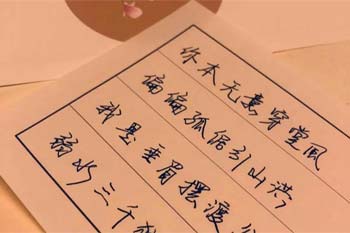 你本无意穿堂风
偏偏孤倨引山洪,
我是垂眉摆渡
祸水三千